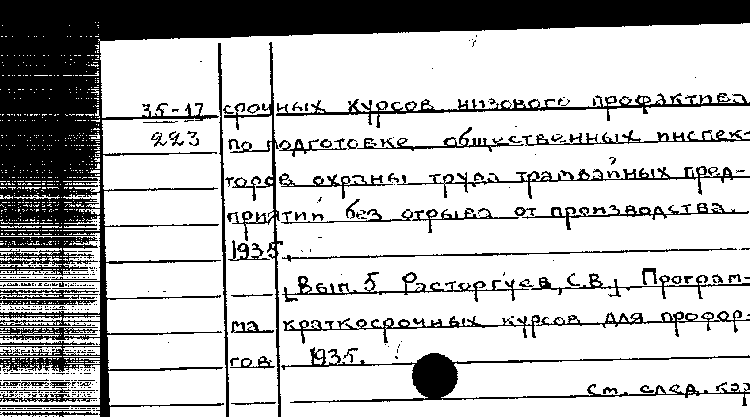 35-17 срочных курсов низового профактива
223 по подготовке общественных инспек-
торов охраны труда трамвайных пред-
приятий без отрыва от производства.
1935.
[Вып. 5. Расторгуев, С.В.]. Програм-
ма краткосрочных курсов для профор-
гов. 1935.
см. след. кар